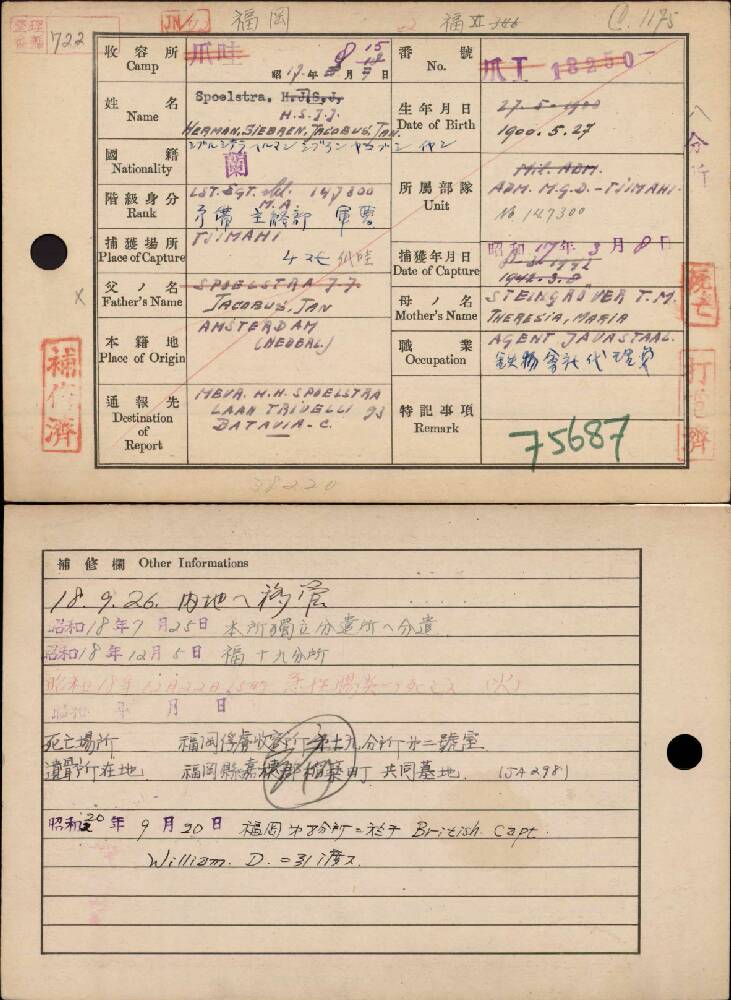 整理番号 722
JN
福岡
福 XI 386
C. 1175
收容所 Camp 爪哇 昭17年3月8日 15
番號 No. 爪I 18250
八分所
姓名 Name Spoelstra, H.J.S.J.
H.S.J.J.
HERMAN, SIEBREN, JACOBUS, JAN
生年月日 Date of Birth 27-5-1900
1900.5.27
國籍 Nationality 蘭
階級身分 Rank LST. SGT. 147300
M.A
予備
所属部隊 Unit Mil. ADM.
ADM. M.G.D. - TJIMAHI.
No 147300
捕獲場所 Place of Capture TJIMAHI
捕獲年月日 Date of Capture 昭和17年3月8日
8-3-1942
1942-3-8
父ノ名 Father's Name SPOELSTRA J.J.
JACOBUS, JAN
母ノ名 Mother's Name STEINGRÖVER T.M.
THERESIA, MARIA
死亡
x
本籍地 Place of Origin AMSTERDAM
(NEDERL.)
職業 Occupation AGENT JAVASTAAL.
補修濟
打電濟
通報先 Destination of Report MEVR. H.H. SPOELSTRA
LAAN TRIVELLI 93
BATAVIA-C.
特記事項 Remark 75687
38220
補修欄 Other Informations
18.9.26. 内地へ移管
昭和18年9月25日 本所獨立分遣所へ分遣
昭和18年12月5日 福十九分所
昭和18年12月22日 急性腸炎
昭和 年 月 日
死亡場所 福岡俘虜收容所第十九分所第二號室
遺骨所在地 福岡縣嘉穂郡稲築町 共同墓地 (JA298)
昭和20年9月20日 福岡 分所ニ於テ British. Capt.
William. D. ニ引渡ス